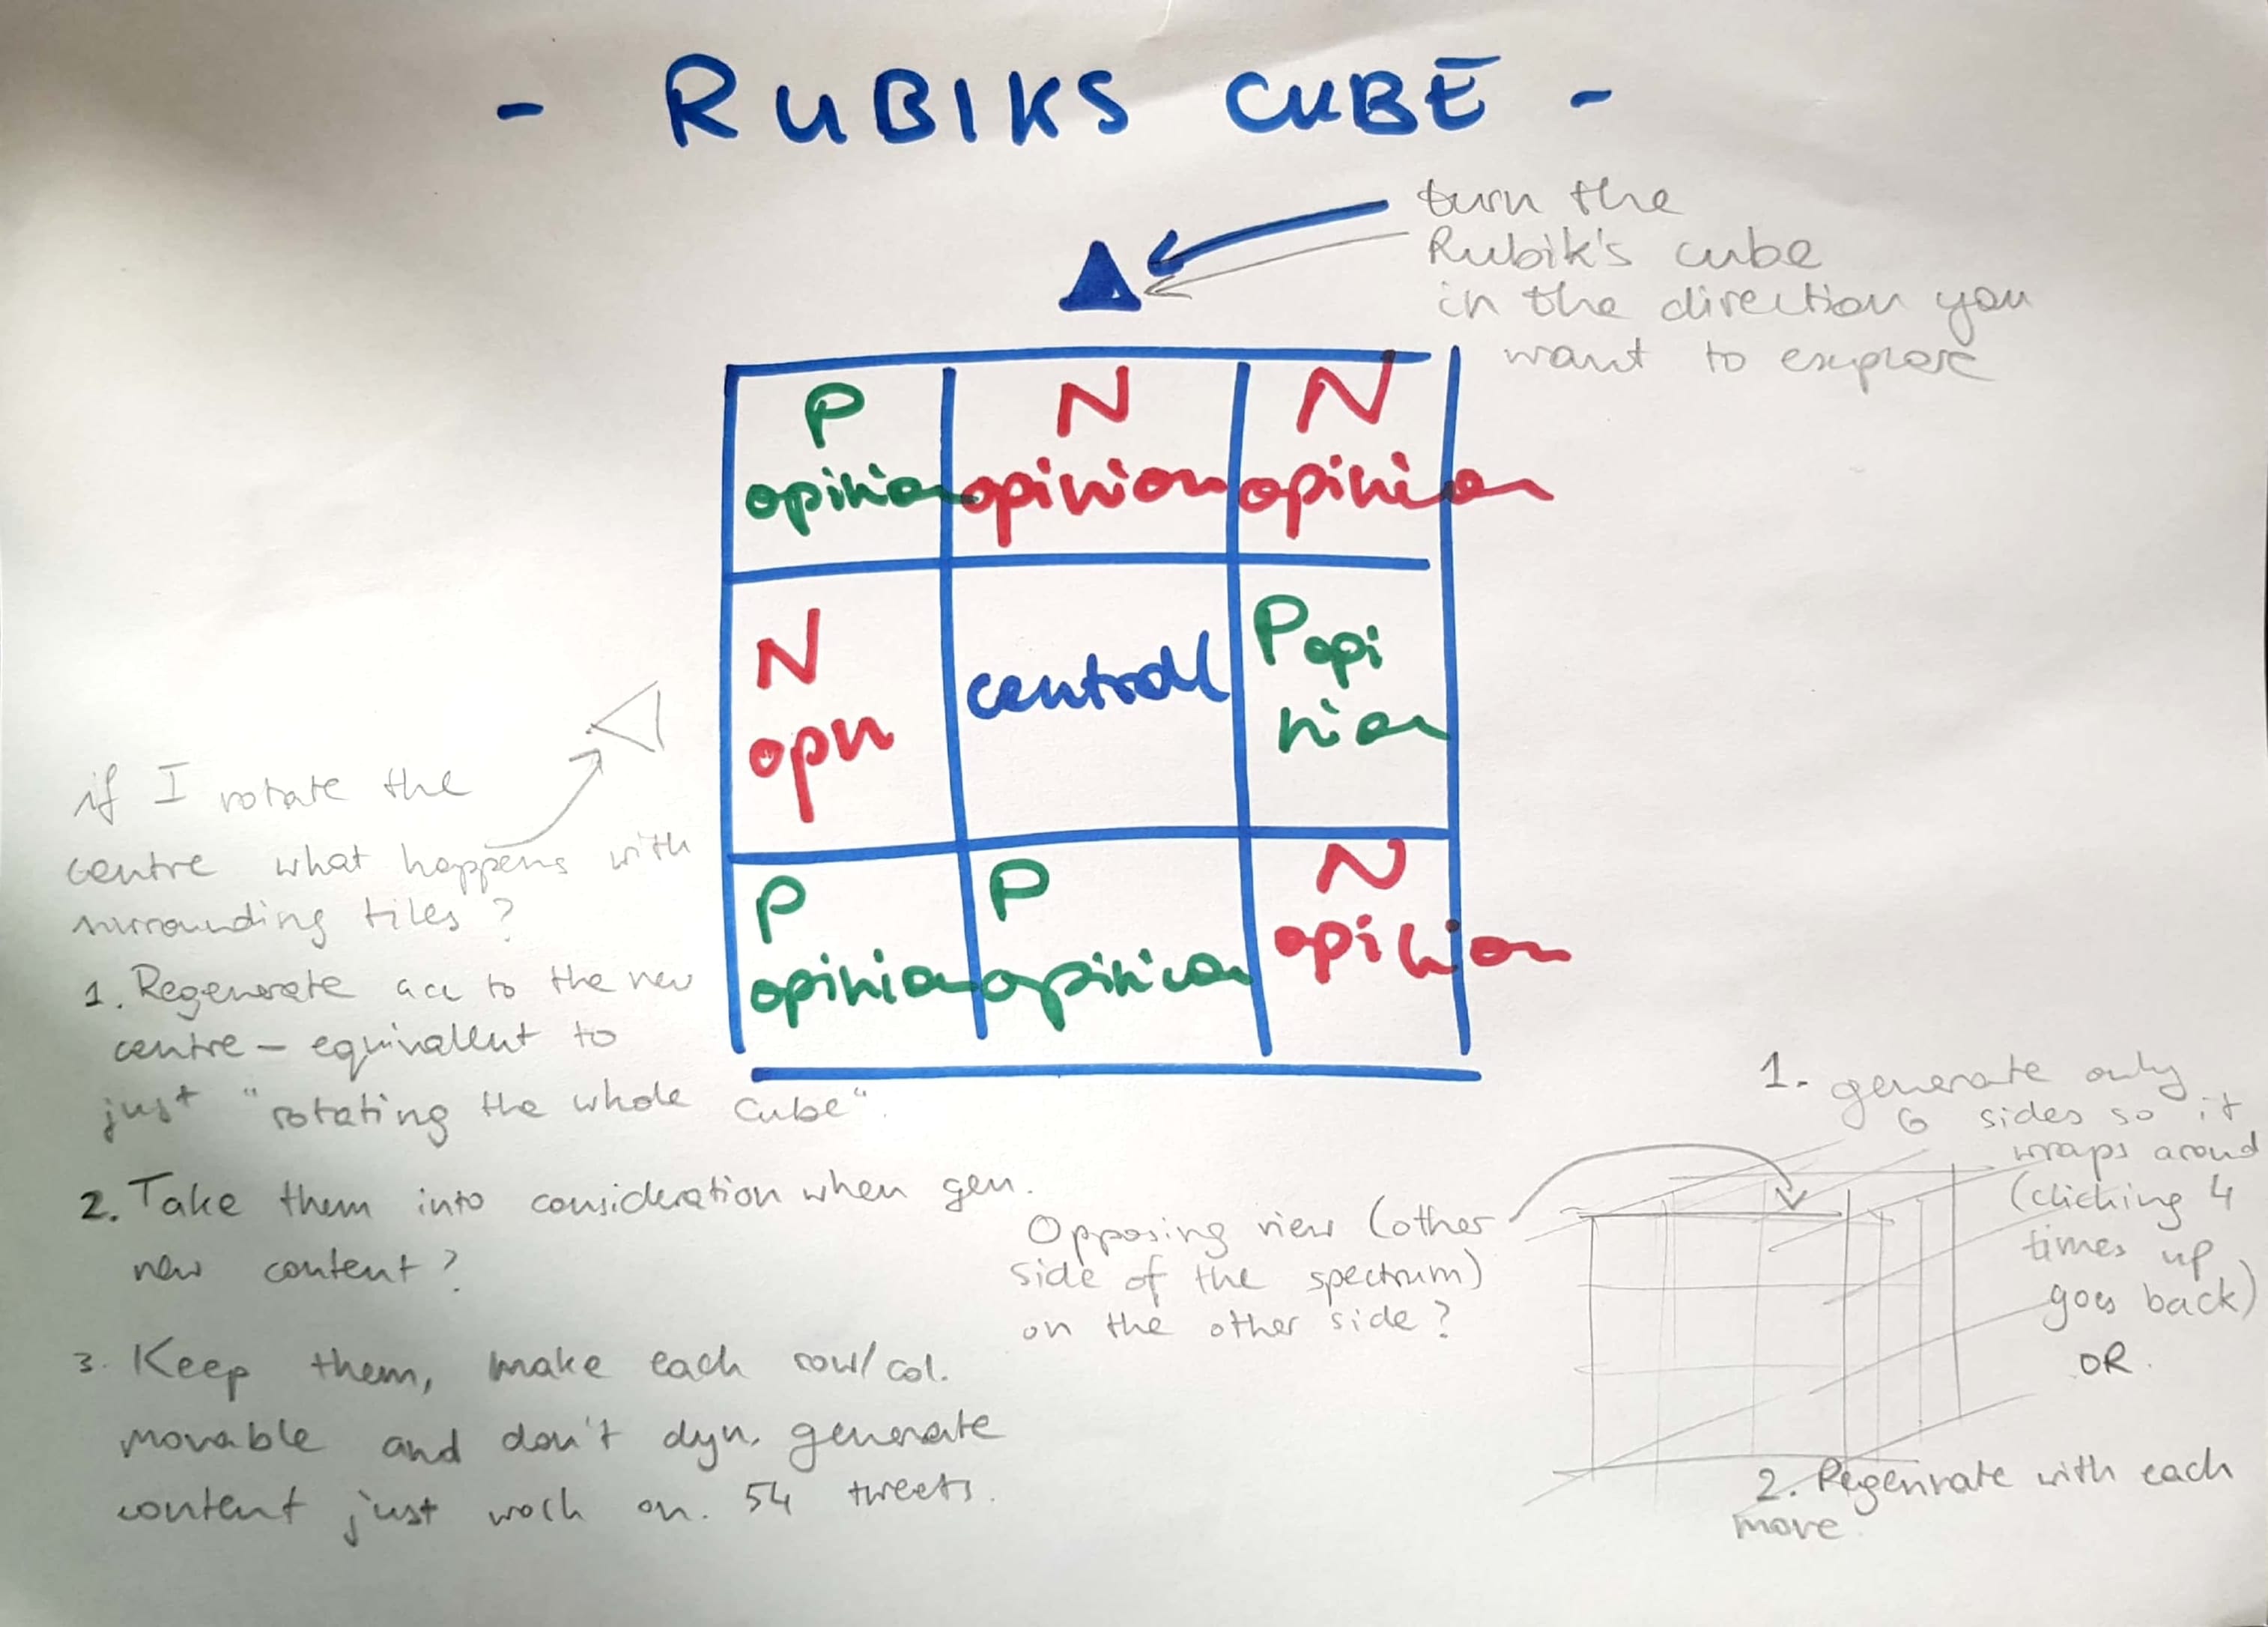 - RUBIKS CUBE -
turn the
Rubik's cube
in the direction you
want to explore
P
opinion
N
opinion
N
opinion
N
opn
central
P opi
nion
P
opinion
P
opinion
N
opinion
if I rotate the
centre what happens with
surrounding tiles?
1. Regenerate acc to the new
centre - equivallent to
just "rotating the whole cube".
2. Take them into consideration when gen.
new content?
3. Keep them, make each row/col.
movable and don't dyn. generate
content just work on. 54 tweets.
Opposing view (other
side of the spectrum)
on the other side?
1. generate only
6 sides so it
wraps around
(clicking 4
times up
goes back)
OR.
2. Regenrate with each
move.